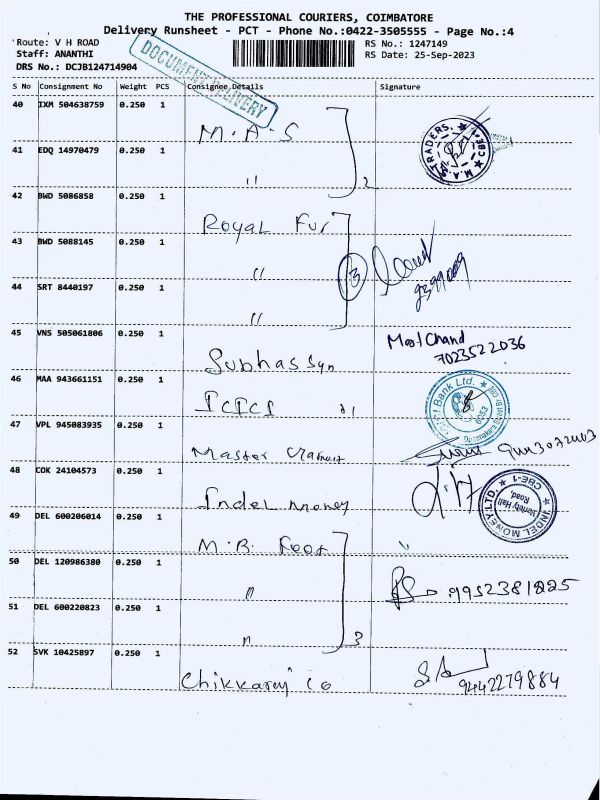 THE PROFESSIONAL COURIERS, COIMBATORE
Delivery Runsheet - PCT - Phone No.:0422-3505555 - Page No.:4
Route: V H ROAD RS No.: 1247149
Staff: ANANTHI RS Date: 25-Sep-2023
DRS No.: DCJB124714904
DOCUMENT DELIVERY
S No Consignment No Weight PCS Consignee Details Signature
40 IXM 504638759 0.250 1
M.A.S
M.A. TRADERS. CBE
41 EDQ 14970479 0.250 1
" 2
42 BWD 5086858 0.250 1
Royal Fur
43 BWD 5088145 0.250 1
" 3
44 SRT 8440197 0.250 1
"
45 VNS 505061806 0.250 1 Mool Chand
Subhas Syn 7023522036
46 MAA 943661151 0.250 1
ICICI Bank Ltd. 6053
47 VPL 945083935 0.250 1
Master
48 COK 24104573 0.250 1
Indel money INDEL MONEY LTD. CBE-1 Hall Road,
49 DEL 600206014 0.250 1
M.B. Foot
50 DEL 120986380 0.250 1
" 9952381225
51 DEL 600220823 0.250 1
" 3
52 SVK 10425897 0.250 1
Co 9442279884